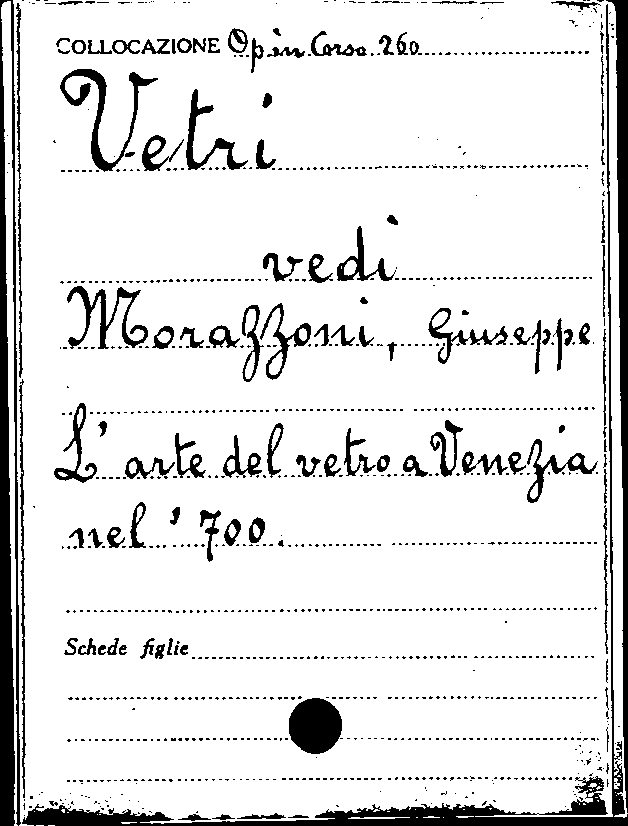 COLLOCAZIONE Op in Corso 260
Vetri
vedi
Morazzoni, Giuseppe
L'arte del vetro a Venezia
nel '700.
Schede figlie